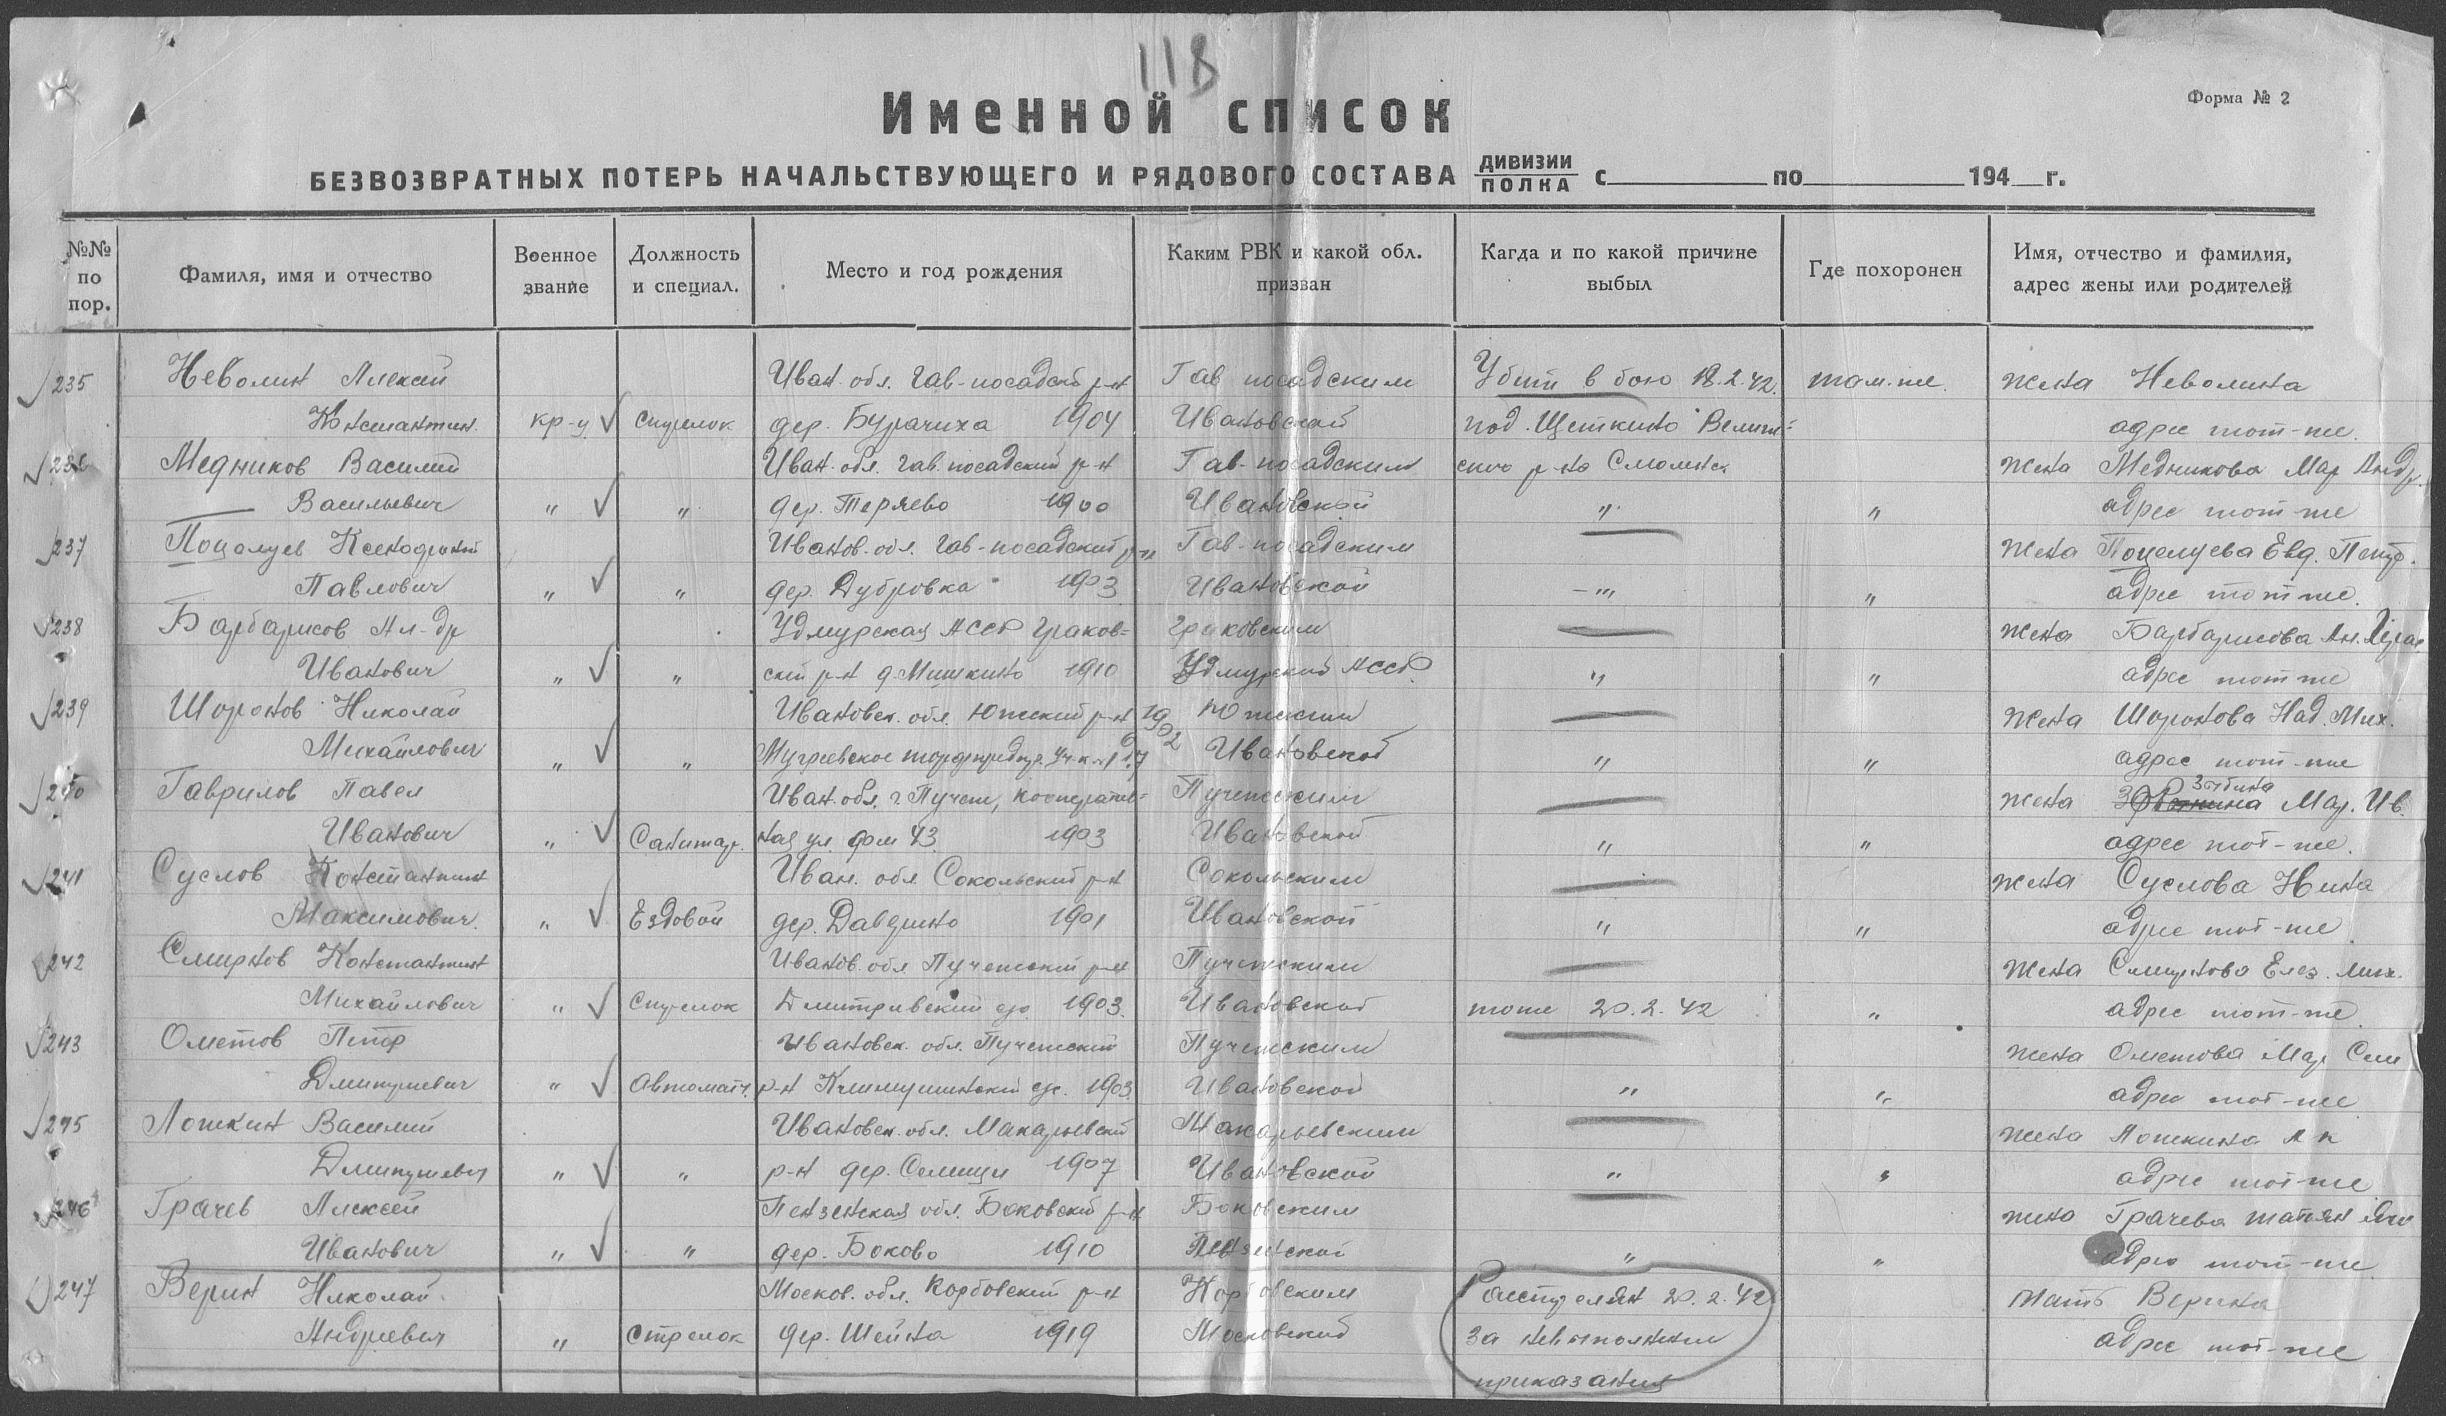 118
Именной список
Форма № 2
БЕЗВОЗВРАТНЫХ ПОТЕРЬ НАЧАЛЬСТВУЮЩЕГО И РЯДОВОГО СОСТАВА ДИВИЗИИ ПОЛКА с по 194 г.
№№ по пор.
Фамиля, имя и отчество
Военное звание
Должность и специал.
Место и год рождения
Каким РВК и какой обл. призван
Кагда и по какой причине выбыл
Где похоронен
Имя, отчество и фамилия, адрес жены или родителей
235 Неволин Алексей Иван. обл. Гав-посадский р-н Гав посадским Убит в бою 18.2.42. там-же. жена Неволина
Константин. кр-ц стрелок дер. Бурачиха 1904 Ивановской под. Щеткино адрес тот-же.
236 Медников Василий Иван. обл. Гав. посадский р-н Гав-посадским р-на Смоленск жена Медникова Мар Андр.
Васильевич " " дер. Теряево 1900 Ивановской " " адрес тот-же
237 Поцелуев Ксенофонтий Иванов. обл. Гав-посадский р-н Гав-посадским жена Поцелуева Евд. Петр.
Павлович " " дер. Дубровка 1903 Ивановской -"- " адрес тот же.
238 Барбарисов Ал-др Удмурская АССР Граков- Граковским жена Барбарисова Ан.
Иванович " " ский р-н д. Мишкино 1910 Удмурской АССР. " " адрес тот же
239 Шоронов Николай Ивановск. обл. Южский р-н 1902 Южским жена Шоронова Над. Мих.
Михайлович " " Мугреевское Ивановской " " адрес тот-же
240 Гаврилов Павел Иван. обл. г Пучеж, кооператив- Пучежским жена Зобнина Мар. Ив.
Иванович " Санитар. ная ул. дом 43. 1903 Ивановской " " адрес тот-же.
241 Суслов Константин Иван. обл Сокольский р-н Сокольским жена Суслова Нина
Максимович. " Ездовой дер. Даврино 1901 Ивановской " " адрес тот-же
242 Смирнов Константин Иванов. обл Пучежский р-н Пучежским жена Смирнова Елез. Мих.
Михайлович " Стрелок Дмитривский с/с 1903. Ивановской тоже 20.2.42 " адрес тот-же
243 Ометов Петр Ивановск. обл. Пучежский Пучежским жена Ометова Мар Сем
Дмитриевич " Автомат. р-н с/с. 1903. Ивановской " " адрес тот-же
245 Лошкин Василий Ивановск. обл. Макарьевский Макарьевским жена Лошкина
Дмитриевич " " р-н дер. Селищи 1907 Ивановской " " адрес тот-же
246 Грачев Алексей Пензенская обл. Боковский р-н Боковским жена Грачева Татьян
Иванович " " дер. Боково 1910 Пензенской " " адрес тот-же
247 Верин Николай Москов. обл. Корбовский р-н Корбовским Расстрелян 20.2.42 мать Верина
Андреевич " стрелок дер. Шейна 1919 Московской за невыполнение адрес тот-же
приказания